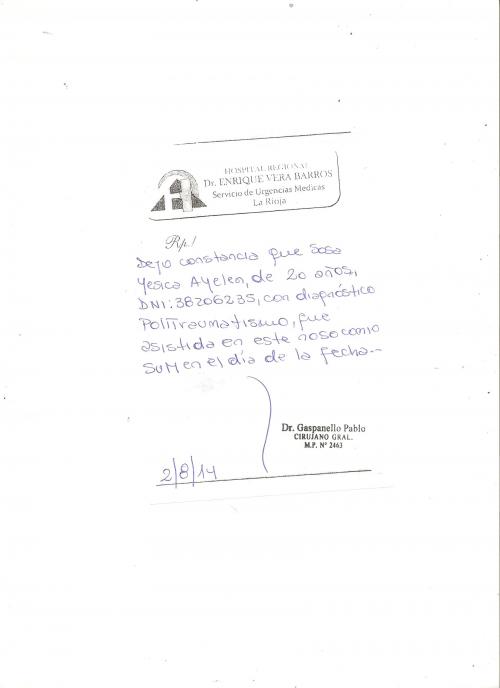 HOSPITAL REGIONAL
Dr. ENRIQUE VERA BARROS
Servicio de Urgencias Medicas
La Rioja
Rp./
Dejo constancia que Sosa
Yesica Ayelen, de 20 años,
DNI: 38206235, con diagnóstico
PoliTraumatismo, fue
asistida en este nosocomio
SUM en el día de la fecha.-
Dr. Gaspanello Pablo
CIRUJANO GRAL.
M.P. Nº 2463
2/8/14